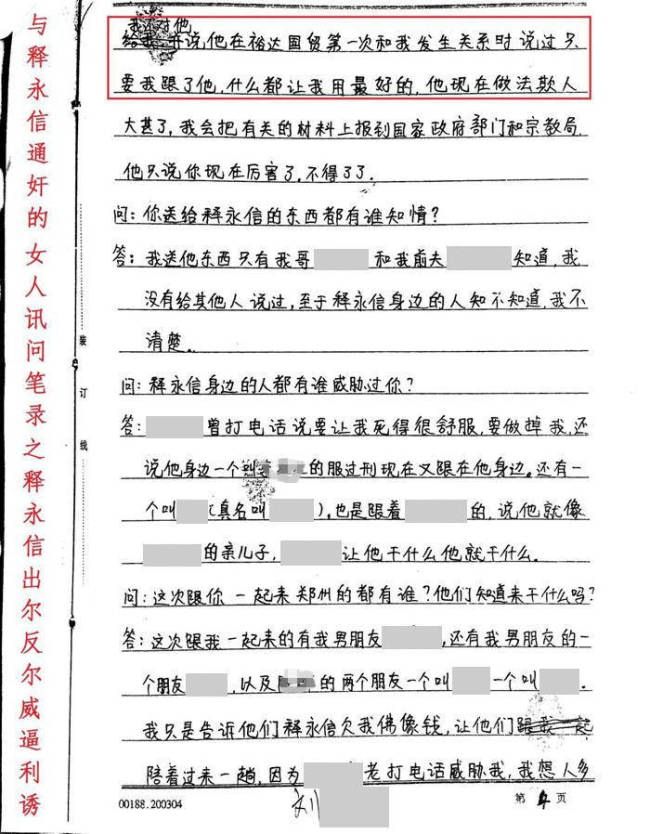 与释永信通奸的女人讯问笔录之释永信出尔反尔威逼利诱
装
订
线
我还对他
说他在裕达国贸第一次和我发生关系时说过只
要我跟了他，什么都让我用最好的，他现在做法欺人
太甚了，我会把有关的材料上报到国家政府部门和宗教局，
他只说你现在厉害了，不得了了．
问：你送给释永信的东西都有谁知情？
答：我送他东西只有我哥 和我前夫 知道，我
没有给其他人说过，至于释永信身边的人知不知道，我不
清楚。
问：释永信身边的人都有谁威胁过你？
答： 曾打电话说要让我死得很舒服，要做掉我，还
说他身边一个 的服过刑现在又跟在他身边。还有一
个叫 （真名叫 ），也是跟着 的，说他就像
的亲儿子， 让他干什么他就干什么。
问：这次跟你一起来郑州的都有谁？他们知道来干什么吗？
答：这次跟我一起来的有我男朋友 ，还有我男朋友的一
个朋友 ，以及 的两个朋友一个叫 一个叫 。
我只是告诉他们释永信欠我佛像钱，让他们
陪着过来一趟，因为 老打电话威胁我，我想人多
00188.200304
刘
第 4 页